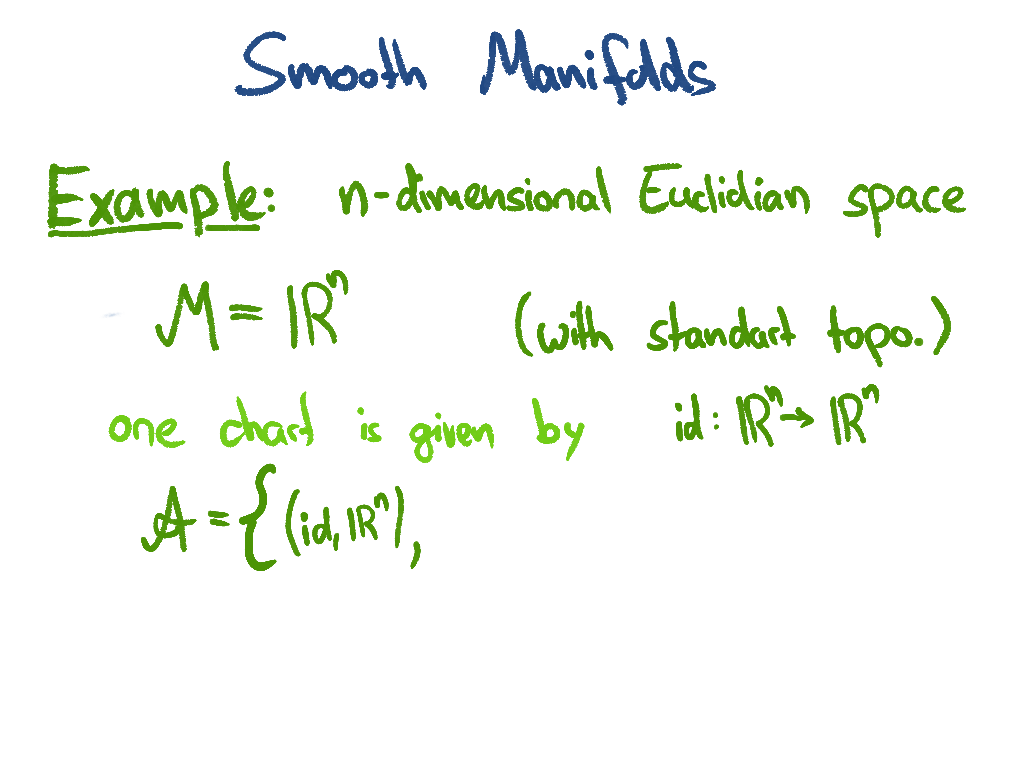 Smooth Manifolds
Example: n-dimensional Euclidian space
M = ℝⁿ (with standart topo.)
one chart is given by id: ℝⁿ → ℝⁿ
A = { (id, ℝⁿ),